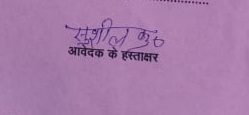 सुशील कु०
आवेदक के हस्ताक्षर